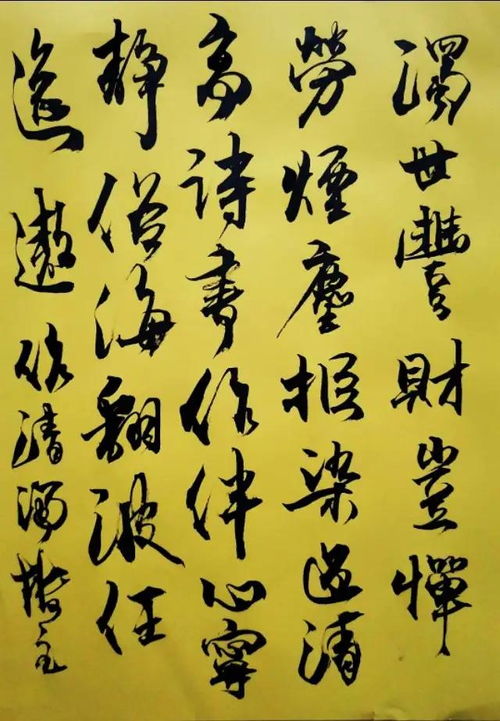 濁世豐財豈憚
勞煙塵拒染邁清
高詩書作伴心寧
靜俗海翻波任
遙遨 作清濁